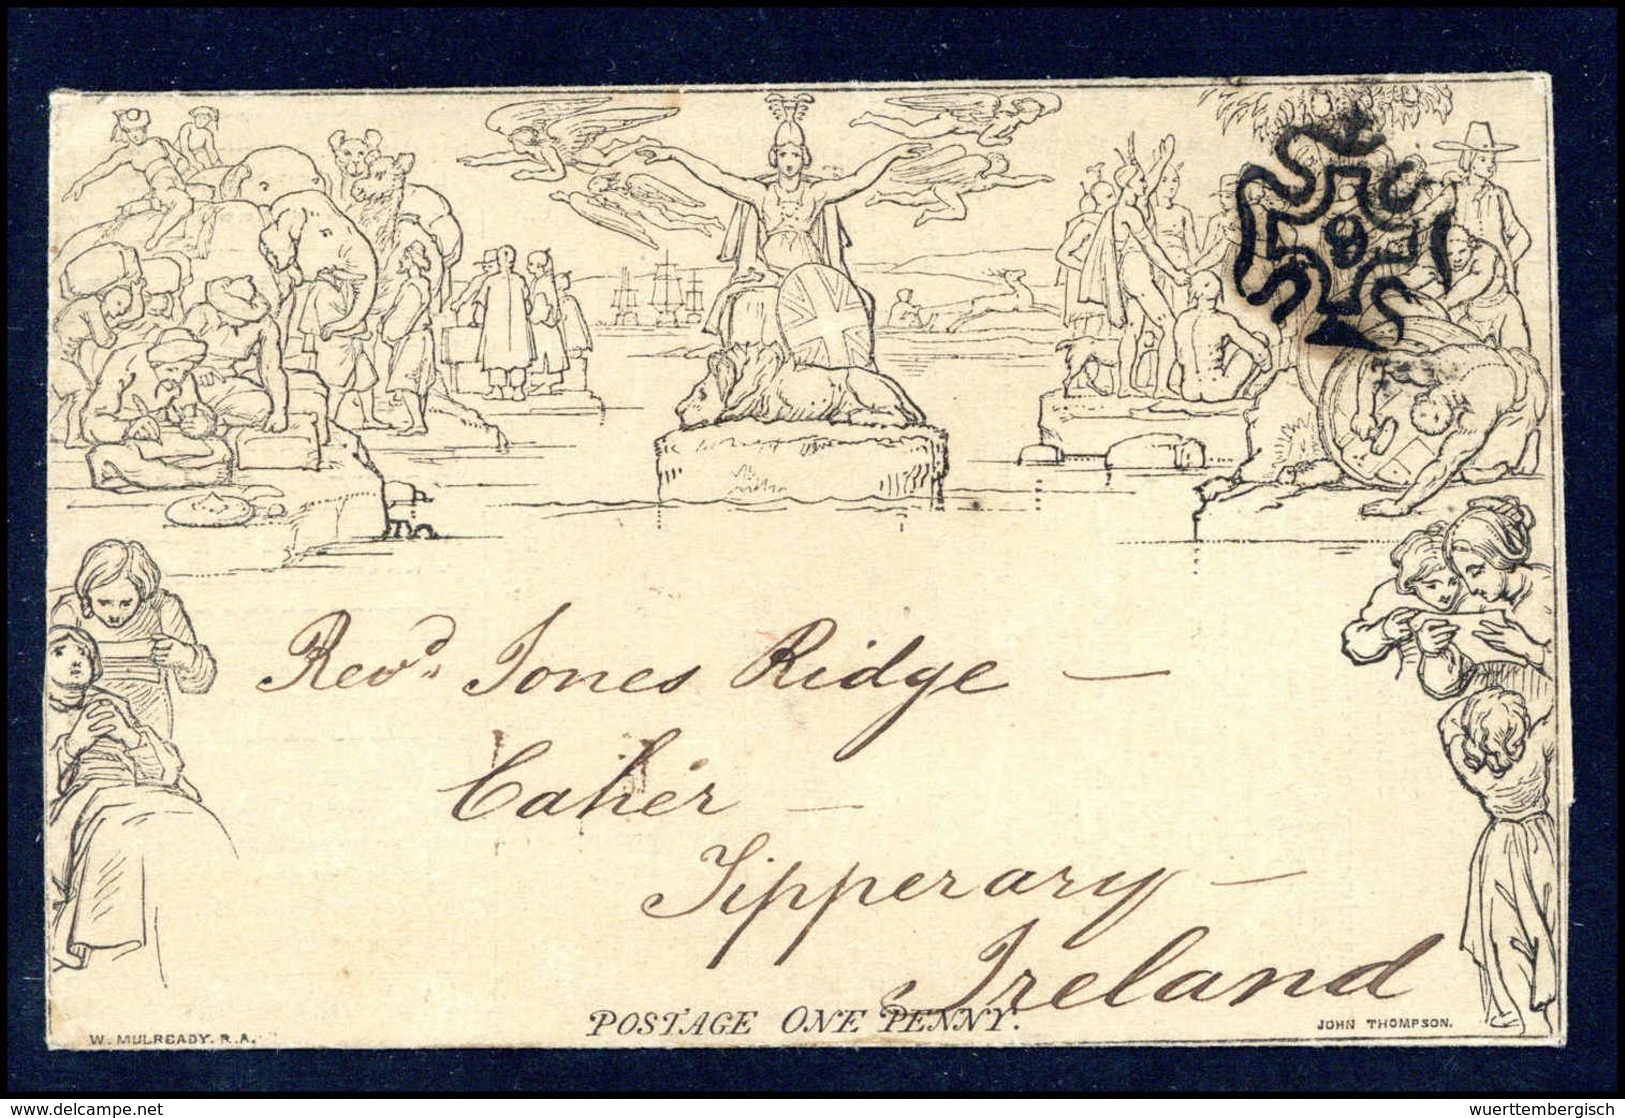 9
Revd. Jones Ridge —
Cahér —
Tipperary —
Ireland
POSTAGE ONE PENNY.
W. MULREADY. R.A.
JOHN THOMPSON.
delcampe.net
wuerttembergisch